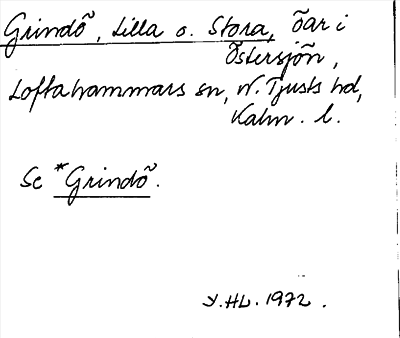 Grindö, Lilla o. Stora, öar i
Östersjön,
Loftahammars sn, N. Tjusts hd,
Kalm. l.
Se *Grindö.
Y.HL. 1972.